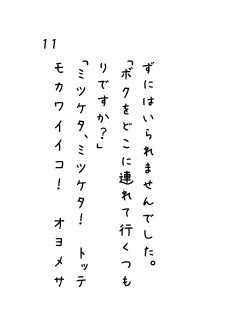 11
ずにはいられませんでした。
「ボクをどこに連れて行くつも
りですか?」
「ミツケタ、ミツケタ! トッテ
モカワイイコ! オヨメサ